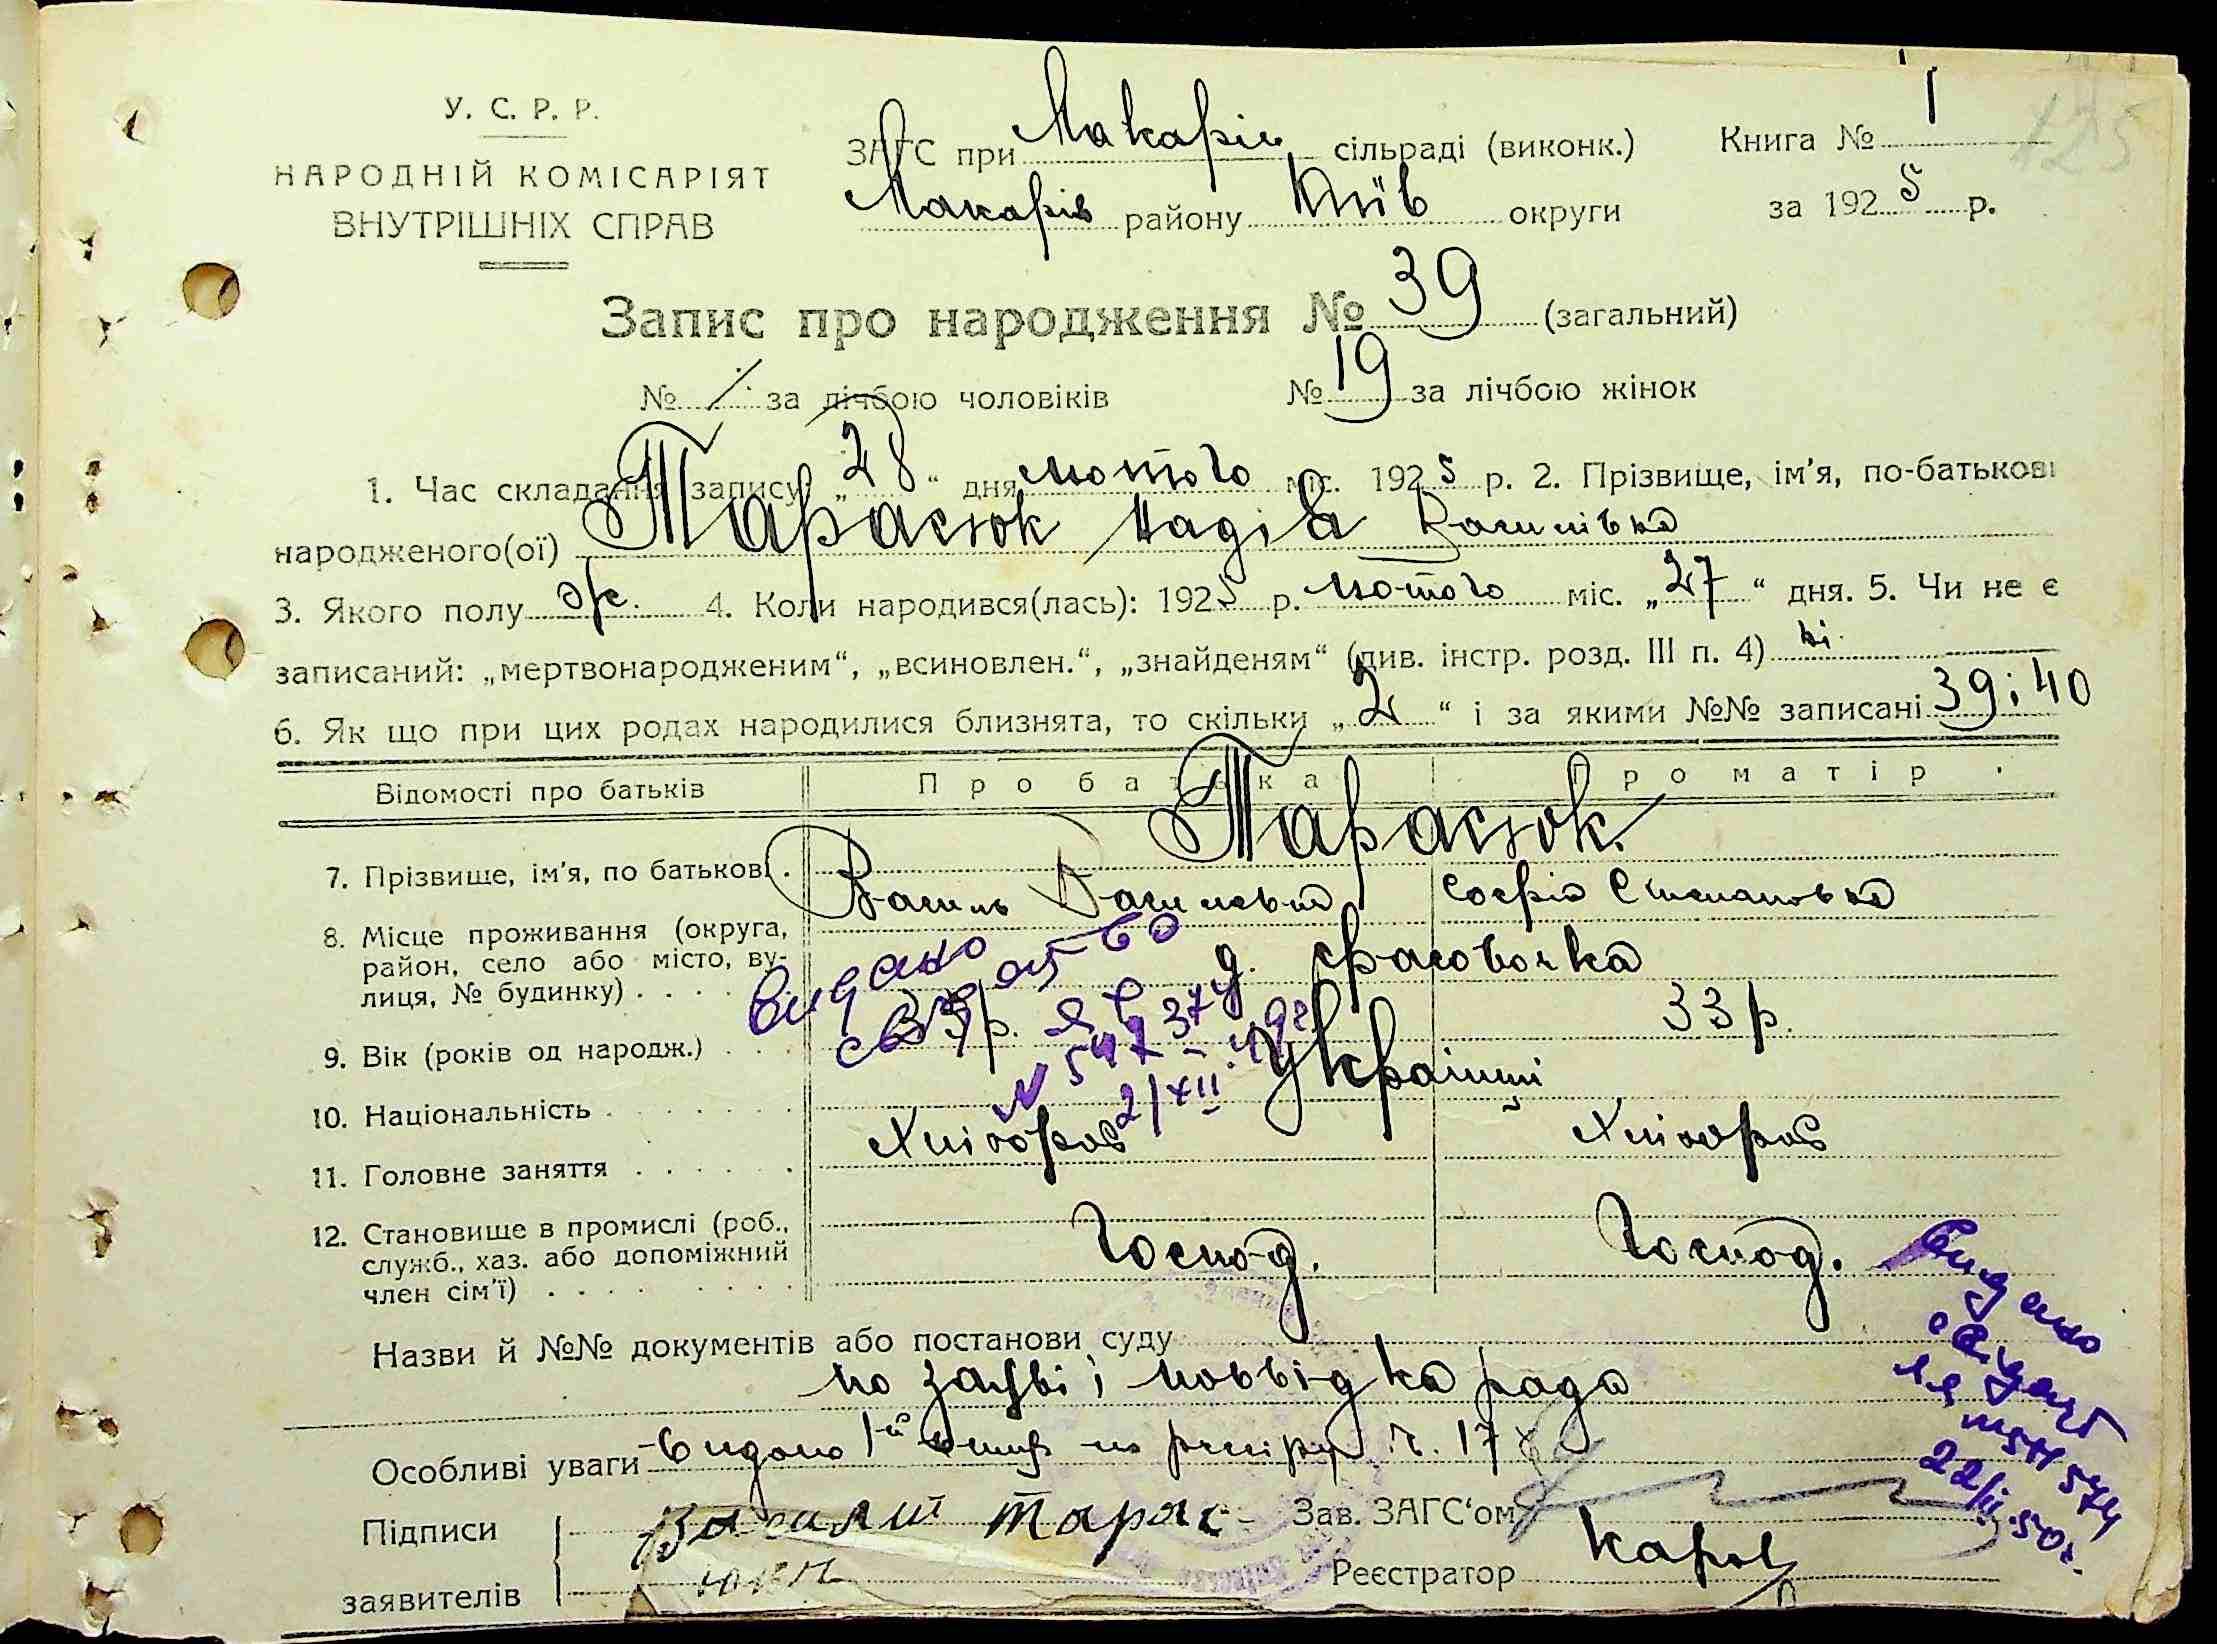 У. С. Р. Р.
НАРОДНІЙ КОМІСАРІЯТ
ВНУТРІШНІХ СПРАВ
ЗАГС при Макарів сільраді (виконк.)
Макарів району Київ округи
Книга № 1
125
за 1925 р.
Запис про народження № 39 (загальний)
№ за лічбою чоловіків № 19 за лічбою жінок
1. Час складання запису „28“ дня лютого міс. 1925 р. 2. Прізвище, ім'я, по-батькові
народженого(ої) Тарасюк Надія Василівна
3. Якого полу ж. 4. Коли народився(лась): 1925 р. лютого міс. „27“ дня. 5. Чи не є
записаний: „мертвонародженим“, „всиновлен.“, „знайденям“ (див. інстр. розд. III п. 4) ні.
6. Як що при цих родах народилися близнята, то скільки „2“ і за якими №№ записані 39 і 40
Відомості про батьків Про батька Про матір
Тарасюк
7. Прізвище, ім'я, по батькові. Василь Софія Степановна
8. Місце проживання (округа,
район, село або місто, ву-
лиця, № будинку) . . . .
9. Вік (років од народж.) . . . 33 р.
10. Національність . . . . . . . Українці
11. Головне заняття . . . . . . Хлібороб Хлібороб
12. Становище в промислі (роб.,
служб., хаз. або допоміжний
член сім'ї) . . . . . . . . . Господ. Господ.
Видано
2/XII
Назви й №№ документів або постанови суду
по заяві і посвідка рада
Особливі уваги видано
Видано
22/II.50.
Підписи
заявителів
Василий Тарас-
юк
Зав. ЗАГС'ом
Реєстратор